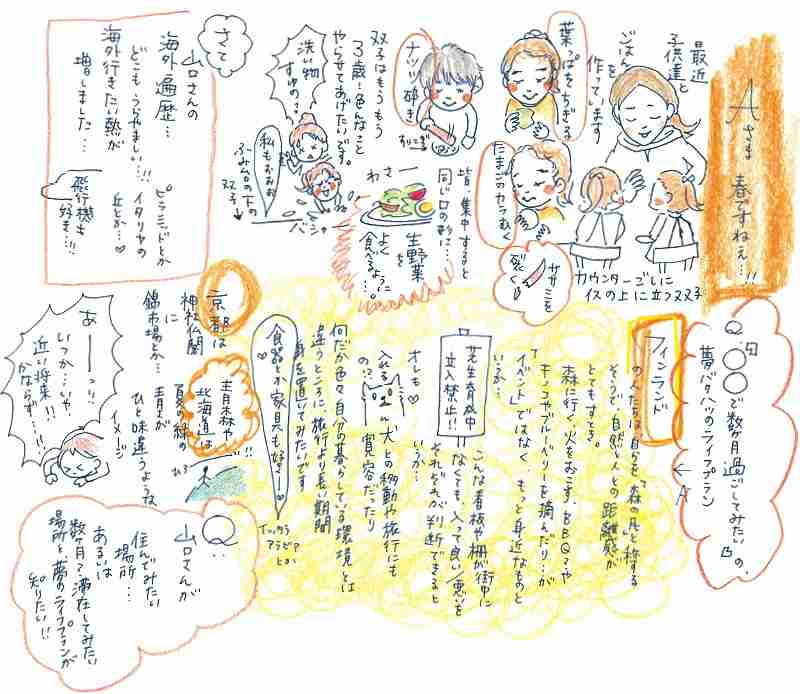 Aさま
春ですねぇ…!!
最近
子供達と
ごはんを
作っています
カウンターごしに
イスの上に立つ双子
葉っぱをちぎる
たまごのカラむく
ササミを
裂く
ナッツ砕き
すりこぎ
皆、集中すると
同じ口の形に…
双子はもうもう
3歳!色んなこと
やらせてあげたいです。
わさー
生野菜
を
よく
食べるように…。
洗い物
するの?
私もおおお
ふみ台の下の
双子
バシャ
さて
山口さんの
海外遍歴…
どこもうらやましい…!!
海外行きたい熱が
増しました…
ピラミッドとか
イタリヤの
丘とか…♡
飛行機も
好き…!!
Q.〇〇で数ヶ月過ごしてみたいの、
夢バクハツのライフプラン
← A
フィンランド
の人たちは自分を「森の民」と称する
そうで。自然と人との距離感が
とてもすてき。
森に行く、火をおこす、BBQ?や
キノコやブルーベリーを摘んだり…が
「イベント」ではなく、もっと身近なものと
いうか…
芝生育成中
立入禁止!!
こんな看板や柵が街中に
なくても、入って良い悪いを
それぞれが判断できると
いうか…
オレも♡
入れる
犬との移動や旅行にも
寛容だったり
の?
何だか色々自分の暮らしている環境とは
違うところに、旅行より長い期間
身を置いてみたいです
食器とか家具も好き…♡
イッタラ
アラビア
とか
京都は
神社仏閣
に
錦市場とか…
青森や
北海道は
夏の緑の
青が
ひと味違うような
イメージ
!!
あーーっ!!
いつか…いや、
近い将来!!
かならず…!!
Q.
山口さんが
住んでみたい
場所…
あるいは
数ヶ月?滞在してみたい
場所と夢のライフプランが
知りたい!!